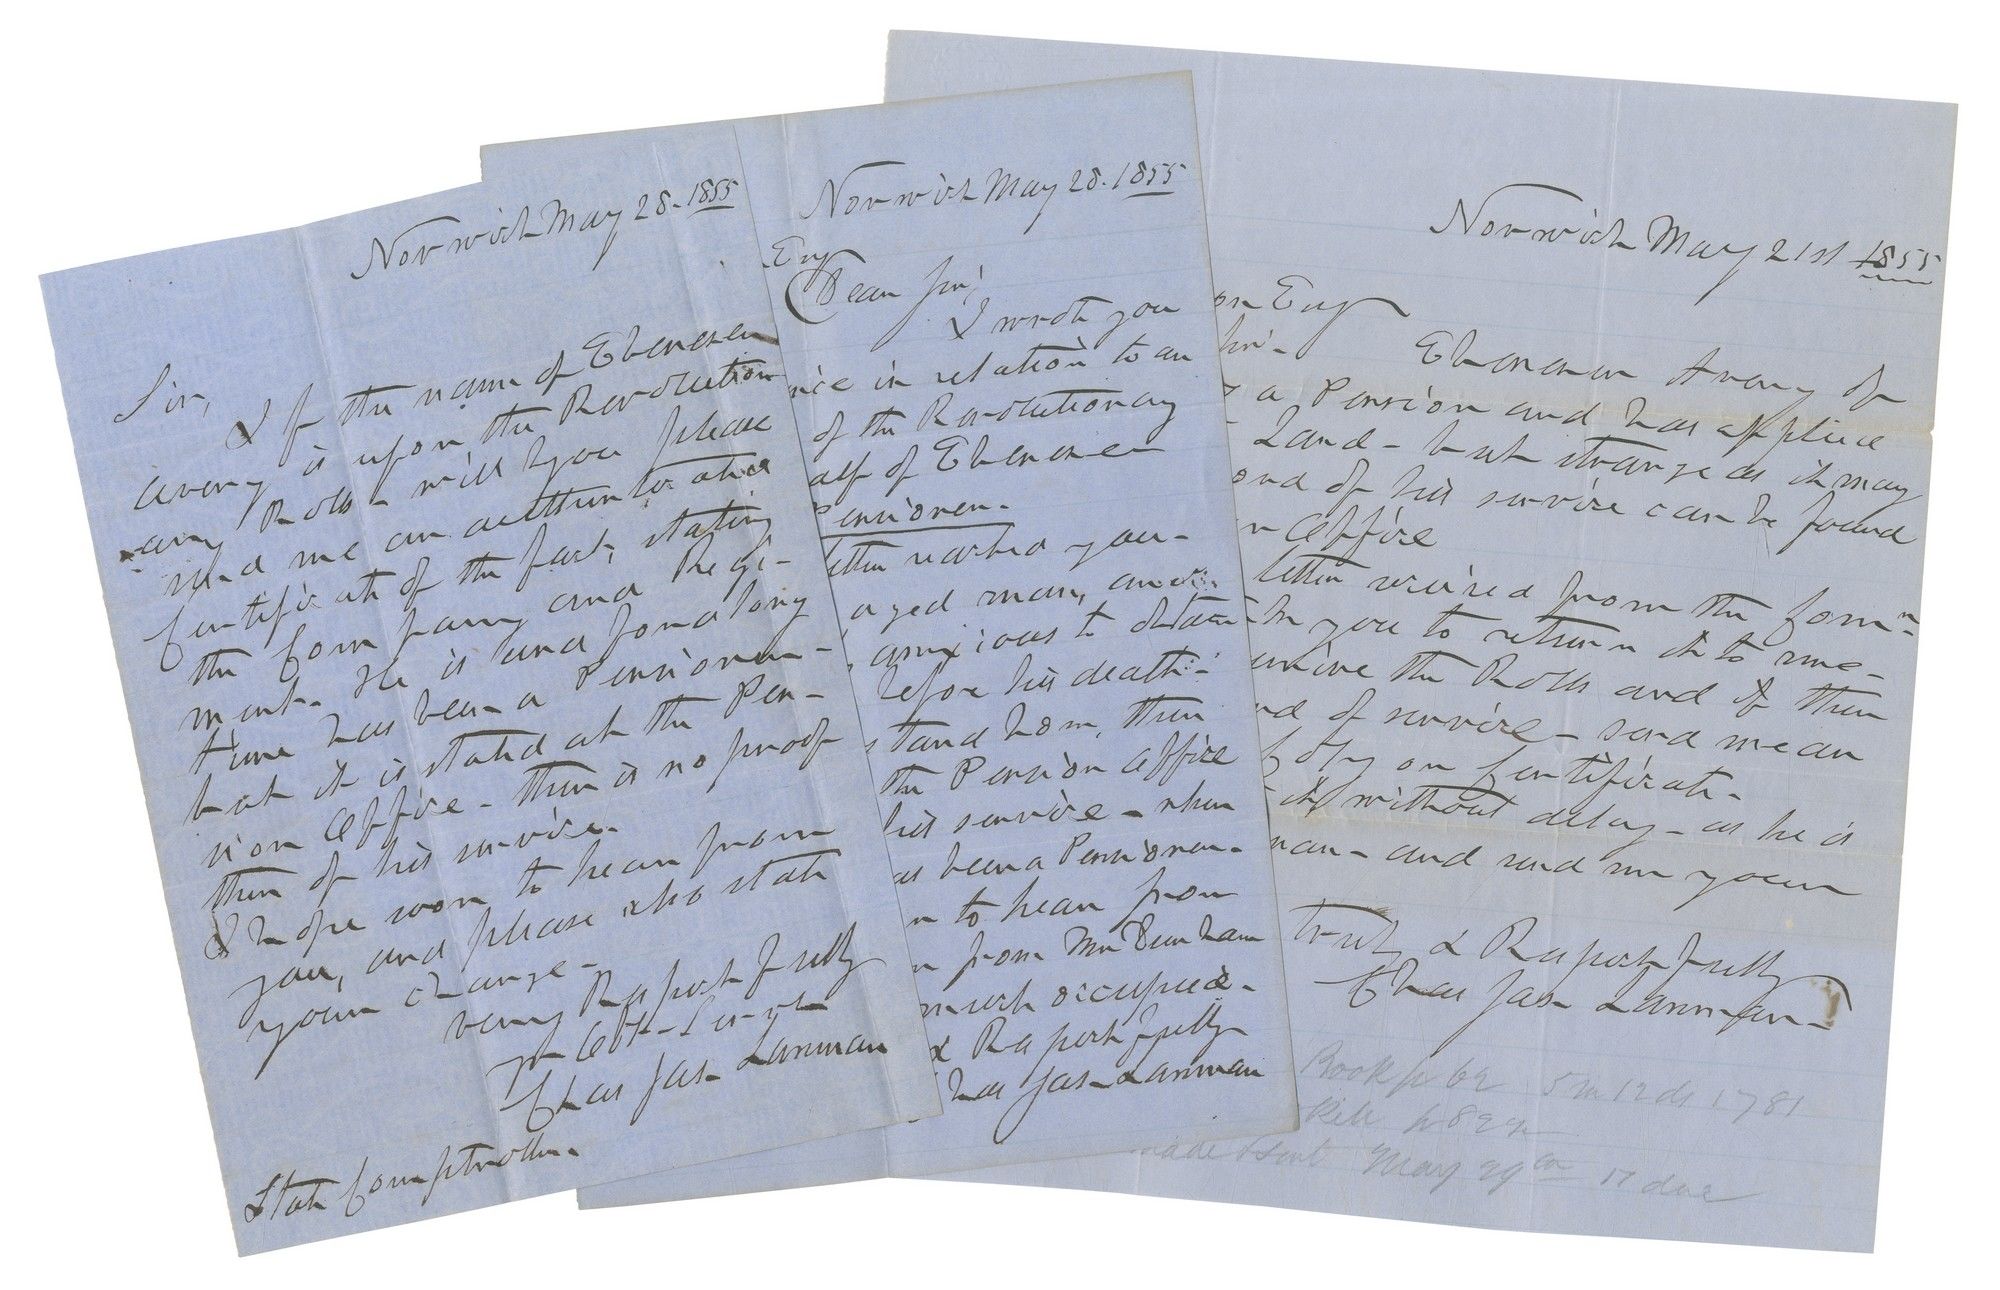 Norwich May 28. 1855
Sir,
If the name of Ebenezer
Avery is upon the Revolution
ary Rolls - will you please
send me an authenticated
Certificate of the fact, stating
the Company and Regi-
ment. He is and for a long
time has been a Pensioner -
but it is stated at the Pen-
sion Office - there is no proof
there of his service.
I hope soon to hear from
you, and please also state
your charge -
very Respectfully
yr Obt Servt
Chas Jas Lanman
State Comptroller.
Norwich May 28. 1855
Esq
Dear Sir,
I wrote you
in relation to an
of the Revolutionary
of Ebenezer
Pensioner.
letter reached you -
aged man, and
anxious to obtain
before his death -
stand him, there
the Pension Office
his service - when
has been a Pensioner -
to hear from
from Mr Dunham
much occupied -
& Respectfully
Chas Jas Lanman
Norwich May 21st 1855
Esq
Sir -
Ebenezer Avery of
a Pension and has applied
Land - but strange as it may
of his service can be found
Office
letter received from the Comr
you to return it to me -
the Rolls and if there
of service - send me an
Copy or Certificate -
it without delay - as he is
man - and send me your
truly & Respectfully
Chas Jas Lanman
Book p 62 5 m 12 ds 1781
p 82
made & sent May 29 17 due